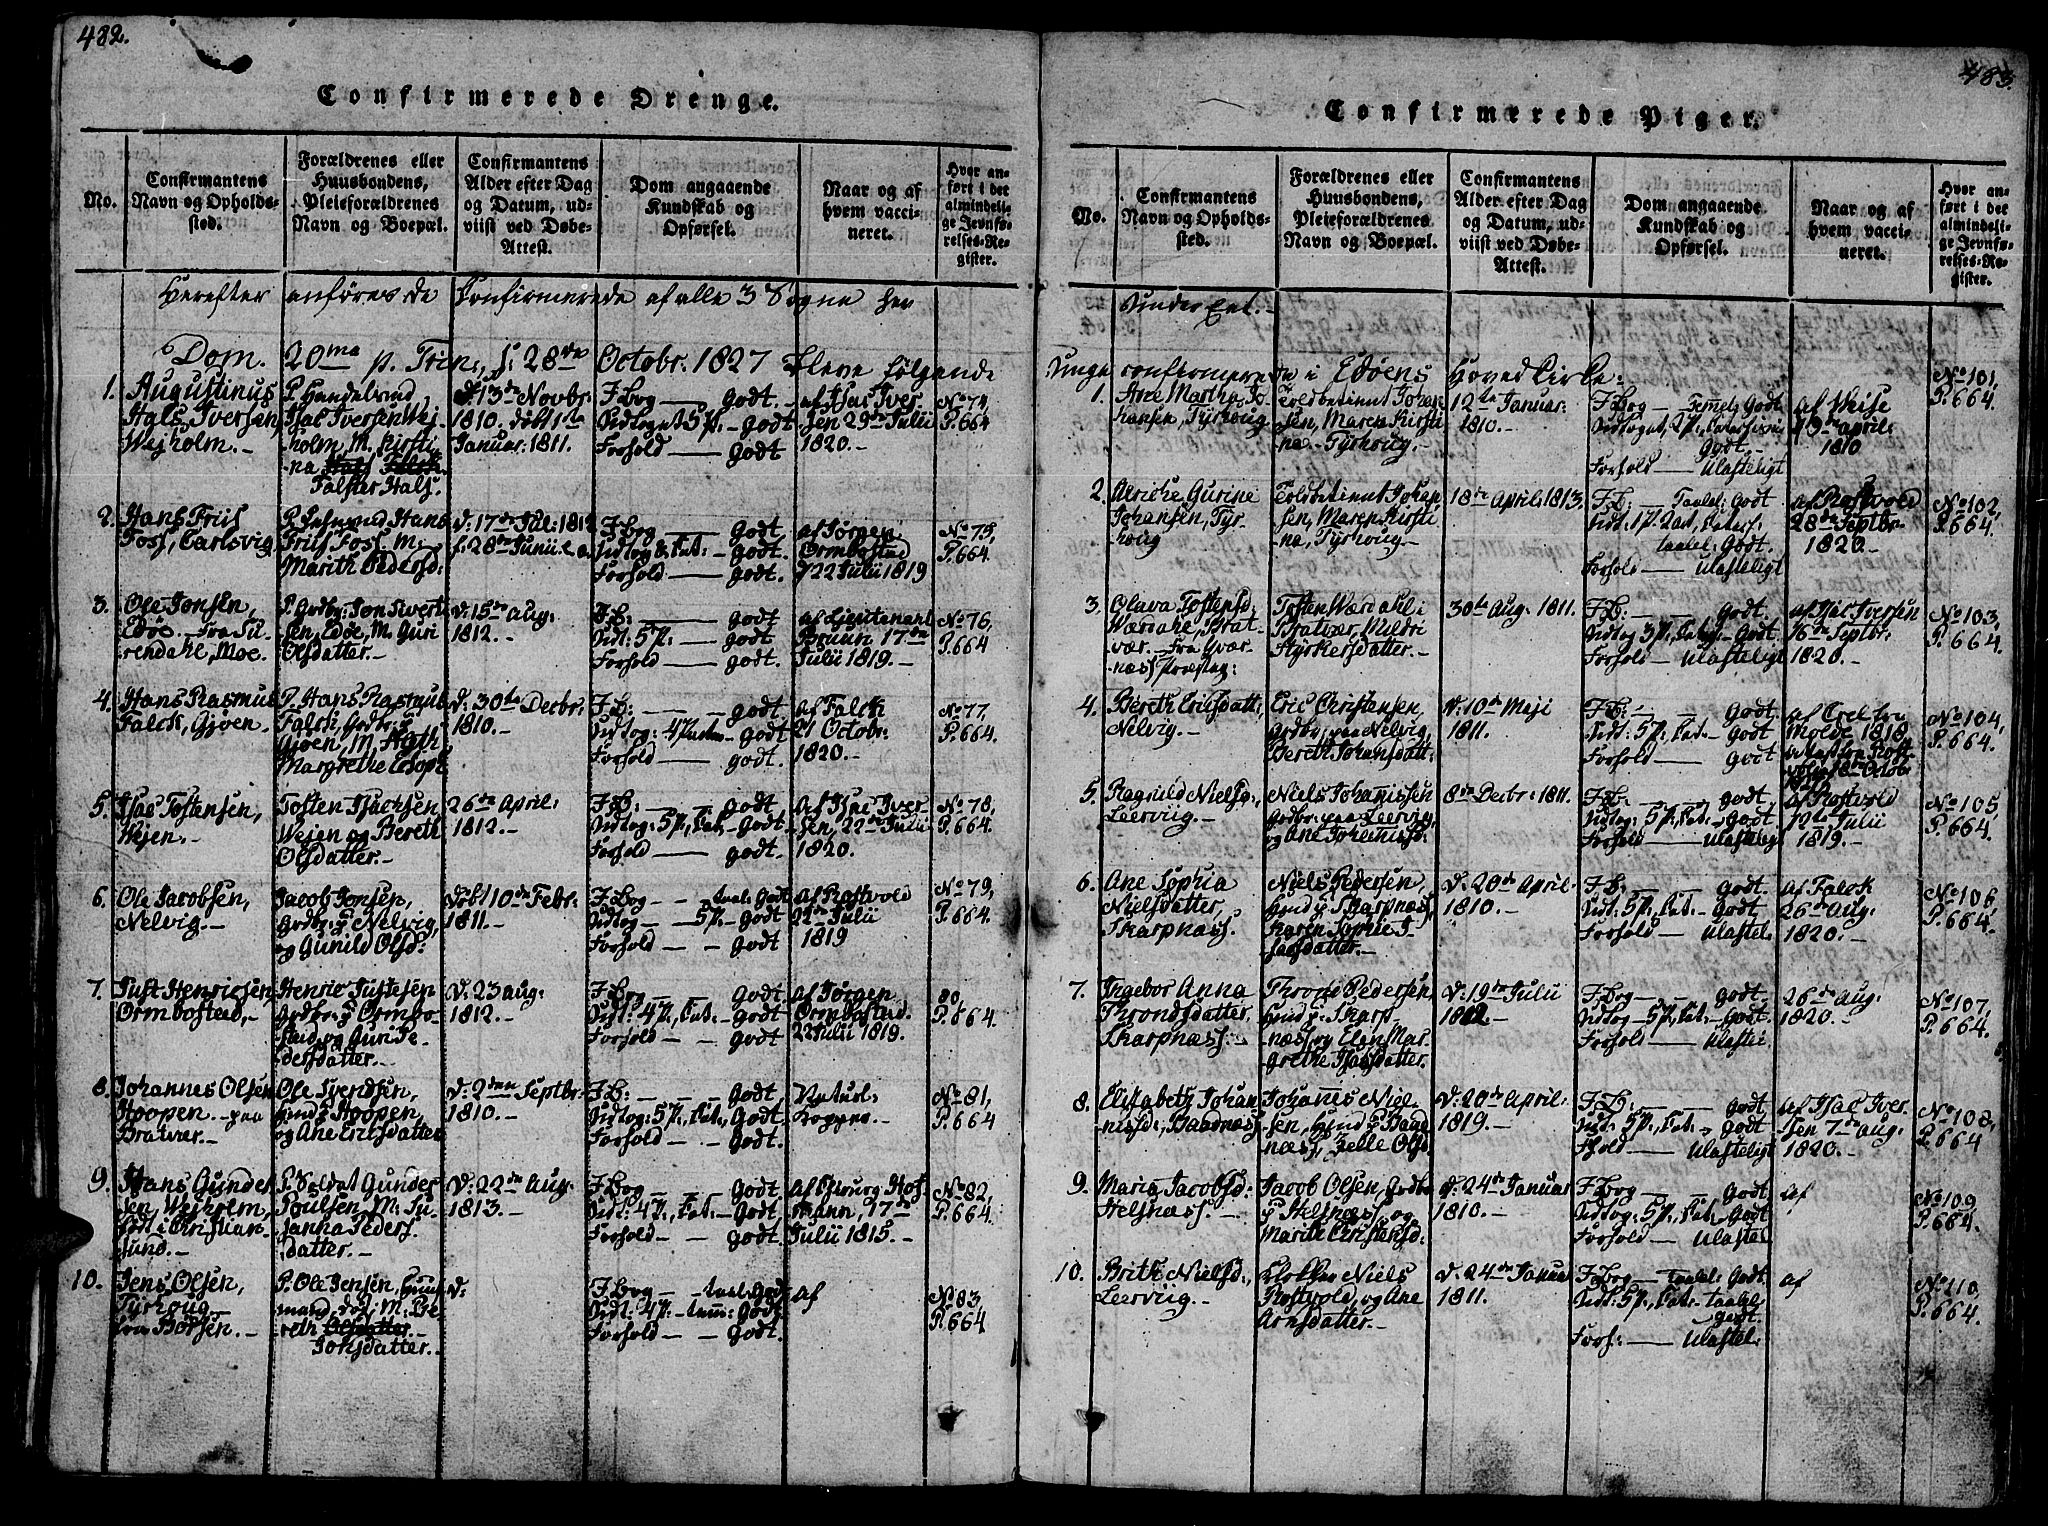 482.
Confirmerede Drenge.
No.
Confirmantens
Navn og Opholds-
sted.
Forældrenes eller
Huusbondens,
Pleieforældrenes
Navn og Boepæl.
Confirmantens
Alder efter Dag
og Datum, ud-
viist ved Døbe-
Attest.
Dom angaaende
Kundskab og
Opførsel.
Naar og af
hvem vacci-
neret.
Hvor an-
ført i det
almindeli-
ge Jevnfø-
relses-Re-
gister.
Herefter anføres de Confirmerede af alle 3 Sogne her
Dom. 20me p. Trin., d: 28de Octobr. 1827 bleve følgende
1.
Augustinus
Hals Iversen,
Wejholm.-
P. Handelsmd
Isac Iversen Wej-
holm, M. Kirsti-
na
Falster Hals.
d. 13de Novbr.
1810. døbt 1ste
Januar: 1811.
F. bog — Godt.
Udtoget 5 P. - Godt
Forhold — Godt
af Isac Iver
sen 29de Julii
1820.
No 74,
P. 664
2.
Hans Friis
Foss, Carlsvig
Hans
Friis Foss M:
Marith Pedersd:
d. 17de Jul: 1812
f. 28de Junii e.a.
F. bog — Godt
Forhold — Godt.
af Jørgen
Ormbostad
22 Julii 1819
No 75,
P. 664.
3.
Ole Jonsen,
Edøe. fra Su-
rendahl, Moe.
P. Gdbr: Jon Siverts
sen, Edøe, M. Guri
Olsdatter.-
d. 15de Aug:
1812.
F. B: — godt
Udt: 5 P. — Godt
Forhold — godt.
af Lieutenant
Bruun 17de
Julii 1819.-
No 76,
P. 664
4.
Hans Rasmus
Falck, Gjøen.
P. Hans Rasmus
Falck, Gdbr: p
Gjøen, M.
Margrethe
d. 30te Decbr:
1810.-
F. B: — godt
Forhold — godt.
af Falck
21 Octobr:
1820.-
No 77,
P. 664.
5.
Isac Tostensen,
Wejen.-
Tosten Isachsen
Wejen og Bereth
Olsdatter.-
26de April:
1812.-
F. B: — godt
Udtog: 5 P., Cat. - Godt
Forhold — godt.
af Isac Iver
sen, 22de Julii
1820.
No 78,
P. 664.
6.
Ole Jacobsen,
Nelvig.-
Jacob Jonsen,
Gdbr: p Nelvig,
og Gunild Olsd:
døbt 10de Febr:
1811.-
F. bog - taal: Godt
Udtog - 5 P. - Godt
Forhold - - Godt
af Rostvold
21de Julii
1819
No 79,
P. 664.
7.
Just Henricsen
Ormbostad,-
Henric Justesen
Gdbr: p Ormbo-
stad, og Guri Pe-
dersdatter.-
d. 23 aug:
1812.-
F. bog — Godt.
Udt: 4 P., Cat: - Godt
Forhold — Godt
af Jørgen
Ormbostad.
22 Julii 1819.
80,
P. 664.
8.
Johannes Olsen
Hoopen.- paa
Bratvær.-
Ole Svendsen,
Hmd p Hoopen,
og Ane Ericsdatter
d. 2den Septbr:
1810.-
F. B: — Godt
Udtog: 5 P., Cat., Godt
Forhold - - Godt.
Naturl:
Kopper.
No 81,
P. 664
9.
Hans Gunder
sen, Wejholm,
født i Christian-
sund.-
P. Soldat Gunder
Poulsen, M: Su-
sanna Peders
datter.-
d. 22de Aug:
1813.-
F. bog — Godt
Udt: 4 P., Cat: - Godt
Forhold - - Godt.
17de
Julii 1815.-
No 82,
P. 664.
10.
Jens Olsen,
Tyrhoug.-
fra Børsen.-
P. Ole Jensen, Huus
mand, død: M. Be-
reth Olsdatter.-
Jonsdatter.-
d:
F. bog - taal: Godt
Udt: 4 P. - tem: Godt
Forhold - - Godt.
af
No 83
P. 664
483.
Confirmerede Piger.
No.
Confirmantens
Navn og Opholds-
sted.
Forældrenes eller
Huusbondens,
Pleieforældrenes
Navn og Boepæl.
Confirmantens
Alder efter Dag
og Datum, ud-
viist ved Døbe-
Attest.
Dom angaaende
Kundskab og
Opførsel.
Naar og af
hvem vacci-
neret.
Hvor an-
ført i det
almindeli-
ge Jevnfø-
relses-Re-
gister.
under Eet.-
Unge confirmerede i Edøens Hoved Kirke:
1.
Ane Martha Jo-
hansen, Tyrhoug
Toldbetient Johan
sen, Maren Kirsti
na - Tyrhoug.
12te Januar:
1810.-
F. bog — Temmel: Godt
Godt.
Forhold — Ulasteligt
af Weise
19de april:
1810
No 101,
P. 664.
2.
Alriche Gurine
Johansen, Tyr-
houg
Toldbetient Johan
sen, Maren Kirsti
na, Tyrhoug.-
18de April: 1813.
F. B: — Taalel: Godt
taalel: Godt.
Forhold — Ulasteligt
af Rostvold
28de Septbr:
1820.-
No 102,
P. 664.
3.
Olava Tostensd:
Wærdahl, Brat-
vær.- fra Qvær-
næss Præsteg:
Tosten Wærdahl i
Bratvær, Mildri
Styrkersdatter.-
30te Aug: 1811.
F. B: — Godt
Udtog 3 P., Cat: - Godt
Forhold — Ulasteligt
af Isac Iversen
16de Septbr:
1820.-
No 103,
P. 664.
4.
Bereth Ericsdatt:,
Nelvig.-
Eric Christensen,
Gdbr, paa Nelvig,
Bereth Johansdatt:
d. 10de Meji
1811.
F. B: — Godt.
Udt: 5 P., Cat. - Godt
Forhold — Godt
Molde 1818,
No 104,
P. 664.
5.
Ragnild Nielsd:,
Leervig.-
Niels Johannissen
Gdbr: paa Leervig,
og Ane Johannisd:
8de Decbr: 1811.
F. B: — godt.
Udtog: 5 P., Cat. - Godt
Forhold — Ulastelig
af Rostvold
12te Julii
1819.-
No 105,
P. 664.
6.
Ane Sophia
Nielsdatter,
Skarpnæss.
Niels Pedersen,
Hmd p Skarpnæss,
Karen Sophie I-
sacsdatter.-
d. 20de April
1810.-
F. B: — Godt.
Udt: 5 P., Cat. - Godt
Forhold — Ulastel.
af Falck
26de Aug:
1820.-
No 106
P. 664.
7.
Ingebor Anna
Throndsdatter,
Skarpnæss.-
Thrond Pedersen,
Hmd p: Skarp-
næss, og Elen Mar-
grethe Isacsdatter.
d. 19de Julii
1812.
F. bog — godt.
Udtog - 5 P., Cat. - Godt.
Forhold — Ulastel
26de Aug:
1820.-
No 107,
P. 664.
8.
Elisabeth Johan
nisd:, Baadnæss
Johannes Niel
sen, Hmd p Baad
næss, Zelle Olsd.
d. 20de April:
1819.-
F. B: — Godt.
Udt: 5 P., Cat. - Godt
Fhold — Ulasteligt
af Isac Iver-
sen 7de aug:
1820.-
No 108,
P. 664
9.
Maria Jacobsd:
Stelsnæss.-
Jacob Olsen, Gdbr
p Stelsnæss, og
Marith Christensd:
d. 24de Januar
1810.-
F. bog — Godt,
Udtog: 5 P., Cat. - Godt
Forhold — Ulastel.
af
No 109,
P. 664.
10.
Brith Nielsd:,
Leerviig.-
Klokker Niels
Rostvold, og Ane
Arnsdatter.-
d. 24de Januar
1811.
F. bog — Taalel: Godt.
Udt: 5 P., Cat: - taalel.
godt.
Forh: — Ulastel.
af
No 110,
P. 664.